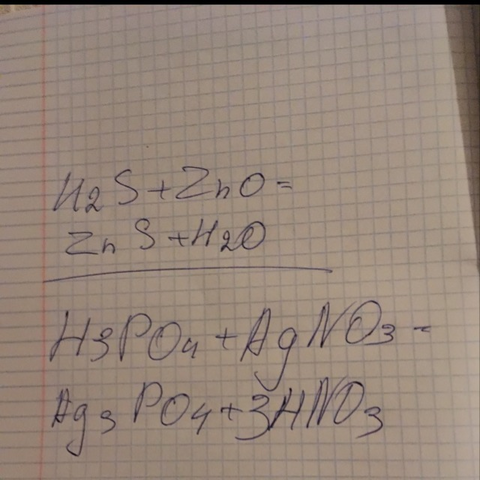 H2S+ZnO=
ZnS+H2O
H3PO4+AgNO3-
Ag3PO4+3HNO3